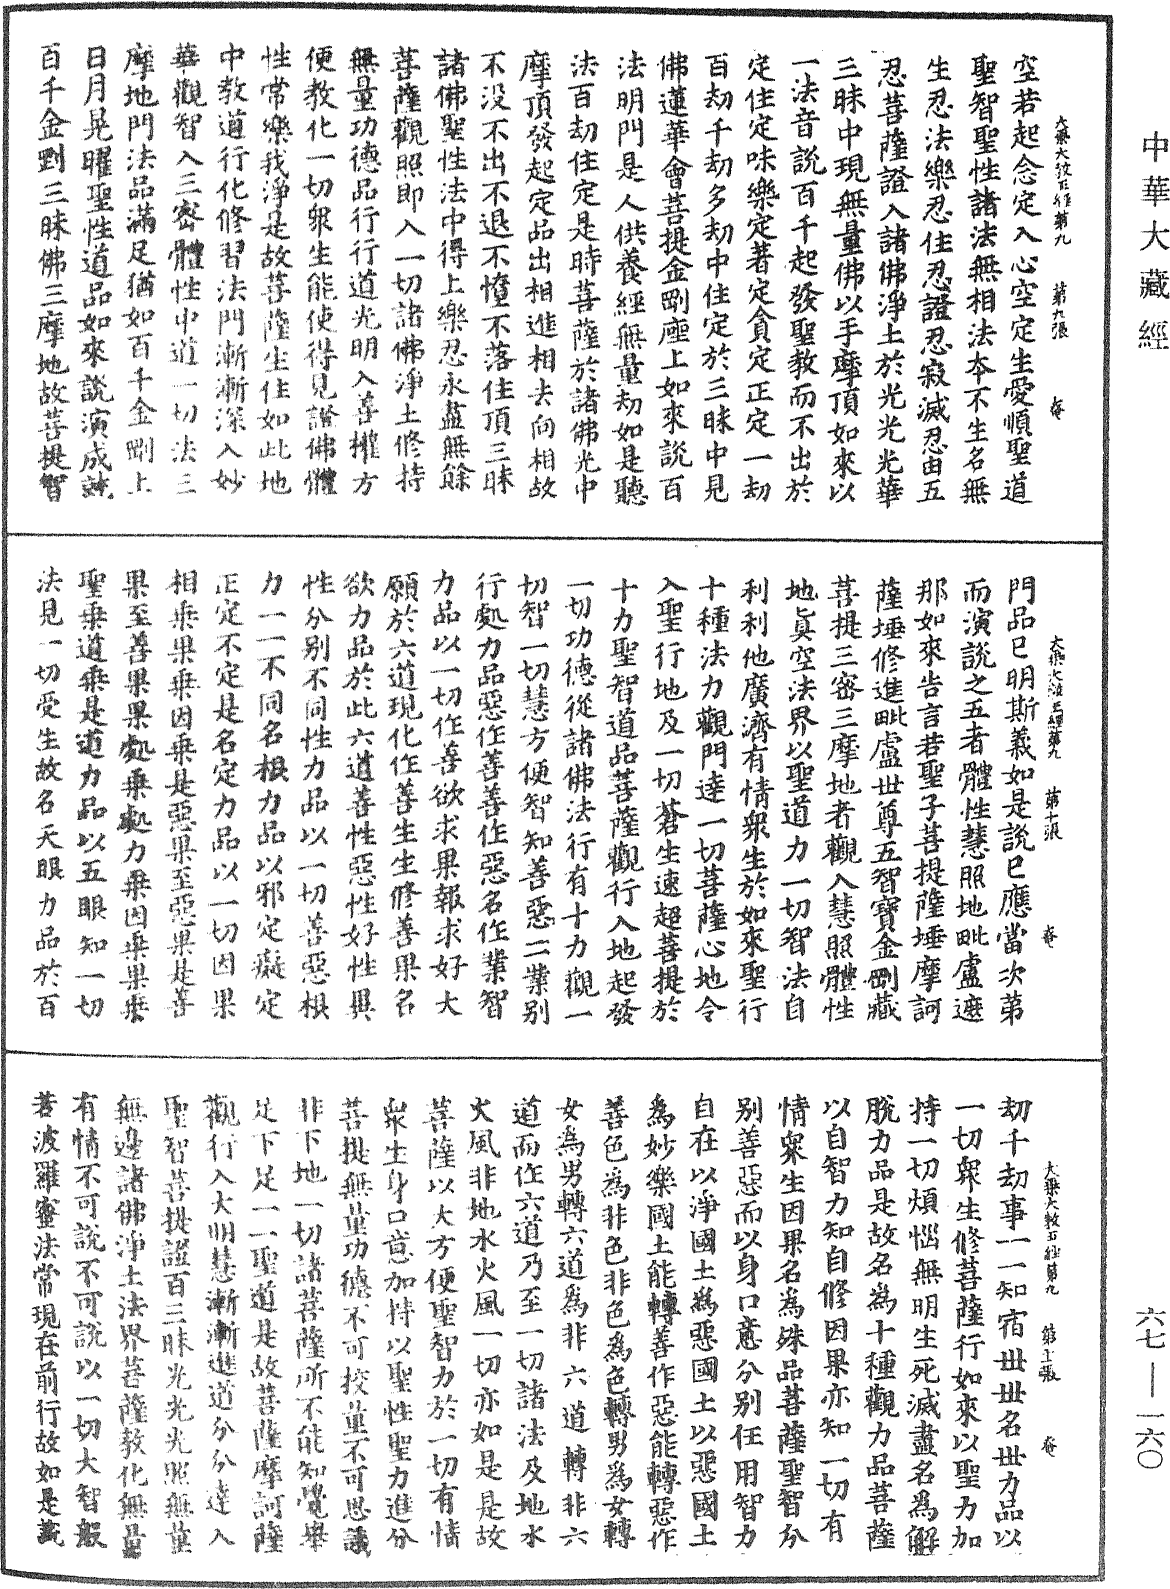 中華大藏經
空若起念定入心空定生愛順聖道
大乘大教王經第九　第九張　菴
聖智聖性諸法無相法本不生名無
生忍法樂忍住忍證忍寂滅忍由五
忍菩薩證入諸佛淨土於光光光華
三昧中現無量佛以手摩頂如來以
一法音說百千起發聖教而不出於
定住定味樂定著定貪定正定一劫
百劫千劫多劫中住定於三昧中見
佛蓮華會菩提金剛座上如來說百
法明門是人供養經無量劫如是聽
法百劫住定是時菩薩於諸佛光中
摩頂發起定品出相進相去向相故
不没不出不退不憻不落住頂三昧
諸佛聖性法中得上樂忍永盡無餘
菩薩觀照即入一切諸佛淨土修持
無量功德品行行道光明入善權方
便教化一切衆生能使得見證佛體
性常樂我淨是故菩薩生住如此地
中教道行化修習法門漸漸深入妙
華觀智入三密體性中道一切法三
摩地門法品滿足猶如百千金剛上
日月晃曜聖性道品如來說演成就
百千金剛三昧佛三摩地故菩提智
門品已明斯義如是說已應當次第
大乘大教王經第九　第十張　菴
而演說之五者體性慧照地毗盧遮
那如來告言若聖子菩提薩埵摩訶
薩埵修進毗盧世尊五智寶金剛藏
菩提三密三摩地者觀入慧照體性
地真空法界以聖道力一切智法自
利利他廣濟有情衆生於如來聖行
十種法力觀門達一切菩薩心地令
入聖行地及一切蒼生速超菩提於
十力聖智道品菩薩觀行入地起發
一切功德從諸佛法行有十力觀一
切智一切慧方便智知善惡二業別
行處力品惡作善善作惡名作業智
力品以一切作善欲求果報求好大
願於六道現化作善生生修善果名
欲力品於此六道善性惡性好性異
性分別不同性力品以一切善惡根
力一一不同名根力品以邪定癡定
正定不定是名定力品以一切因果
相乘果乘因乘是惡果至惡果是善
果至善果果處乘處力乘因乘果乘
聖乘道乘是道力品以五眼知一切
法見一切受生故名天眼力品於百
劫千劫事一一知宿世世名世力品以
大乘大教王經第九　第十一張　菴
一切衆生修菩薩行如來以聖力加
持一切煩惱無明生死滅盡名為解
脫力品是故名為十種觀力品菩薩
以自智力知自修因果亦知一切有
情衆生因果名為殊品菩薩聖智分
別善惡而以身口意分別任用智力
自在以淨國土為惡國土以惡國土
為妙樂國土能轉善作惡能轉惡作
善色為非色非色為色轉男為女轉
女為男轉六道為非六道轉非六
道而作六道乃至一切諸法及地水
火風非地水火風一切亦如是是故
菩薩以大方便聖智力於一切有情
衆生身口意加持以聖性聖力進分
菩提無量功德不可校量不可思議
非下地一切諸菩薩所不能知覺舉
足下足一一聖道是故菩薩摩訶薩
觀行入大明慧漸漸進道分分達入
聖智菩提證百三昧光光光照無量
無邊諸佛淨土法界菩薩教化無量
有情不可說不可說以一切大智般
若波羅蜜法常現在前行故如是說
六七—一六〇